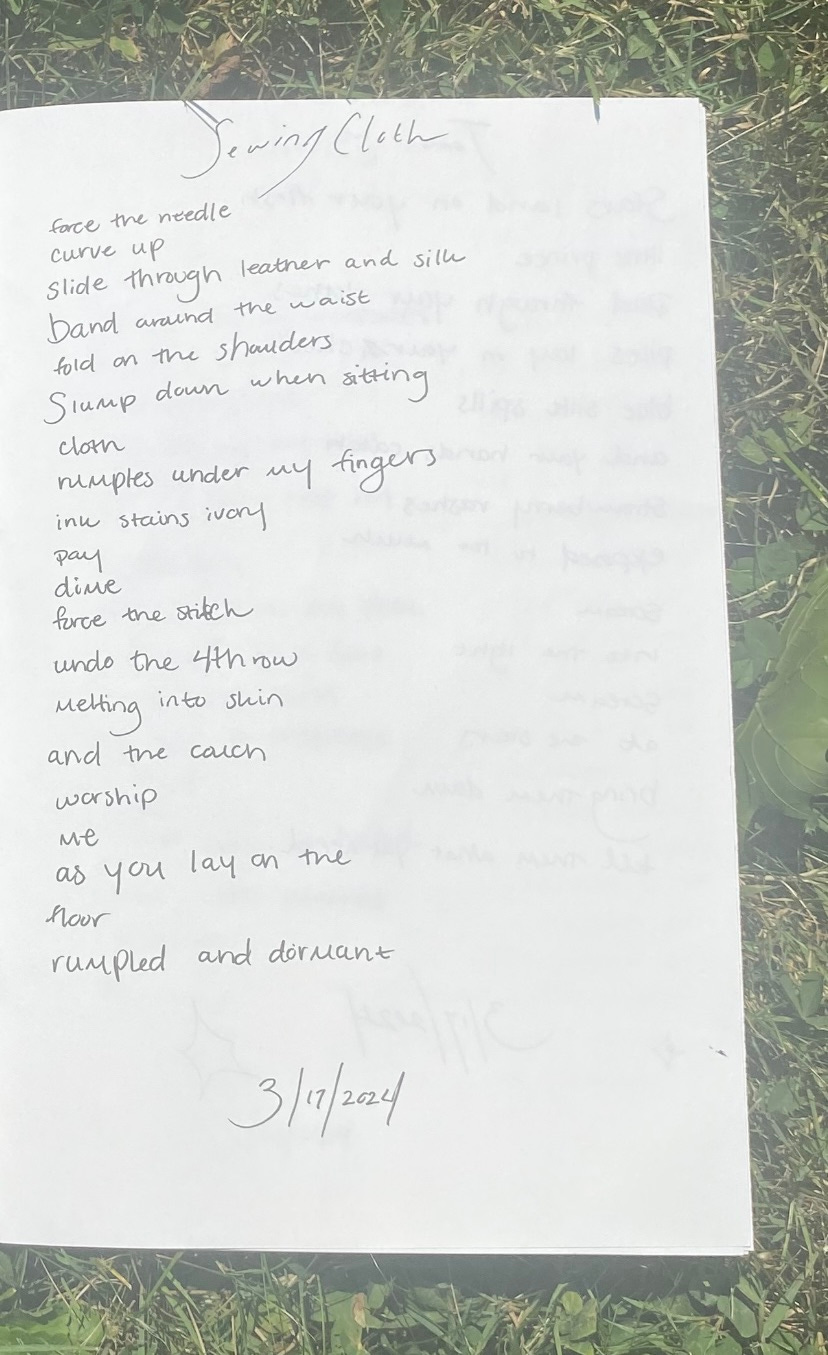 Sewing Cloth
force the needle
curve up
slide through leather and silk
band around the waist
fold on the shoulders
Slump down when sitting
cloth
rumples under my fingers
ink stains ivory
pay
dime
force the stitch
undo the 4th row
melting into skin
and the couch
worship
me
as you lay on the
floor
rumpled and dormant
3/17/2024